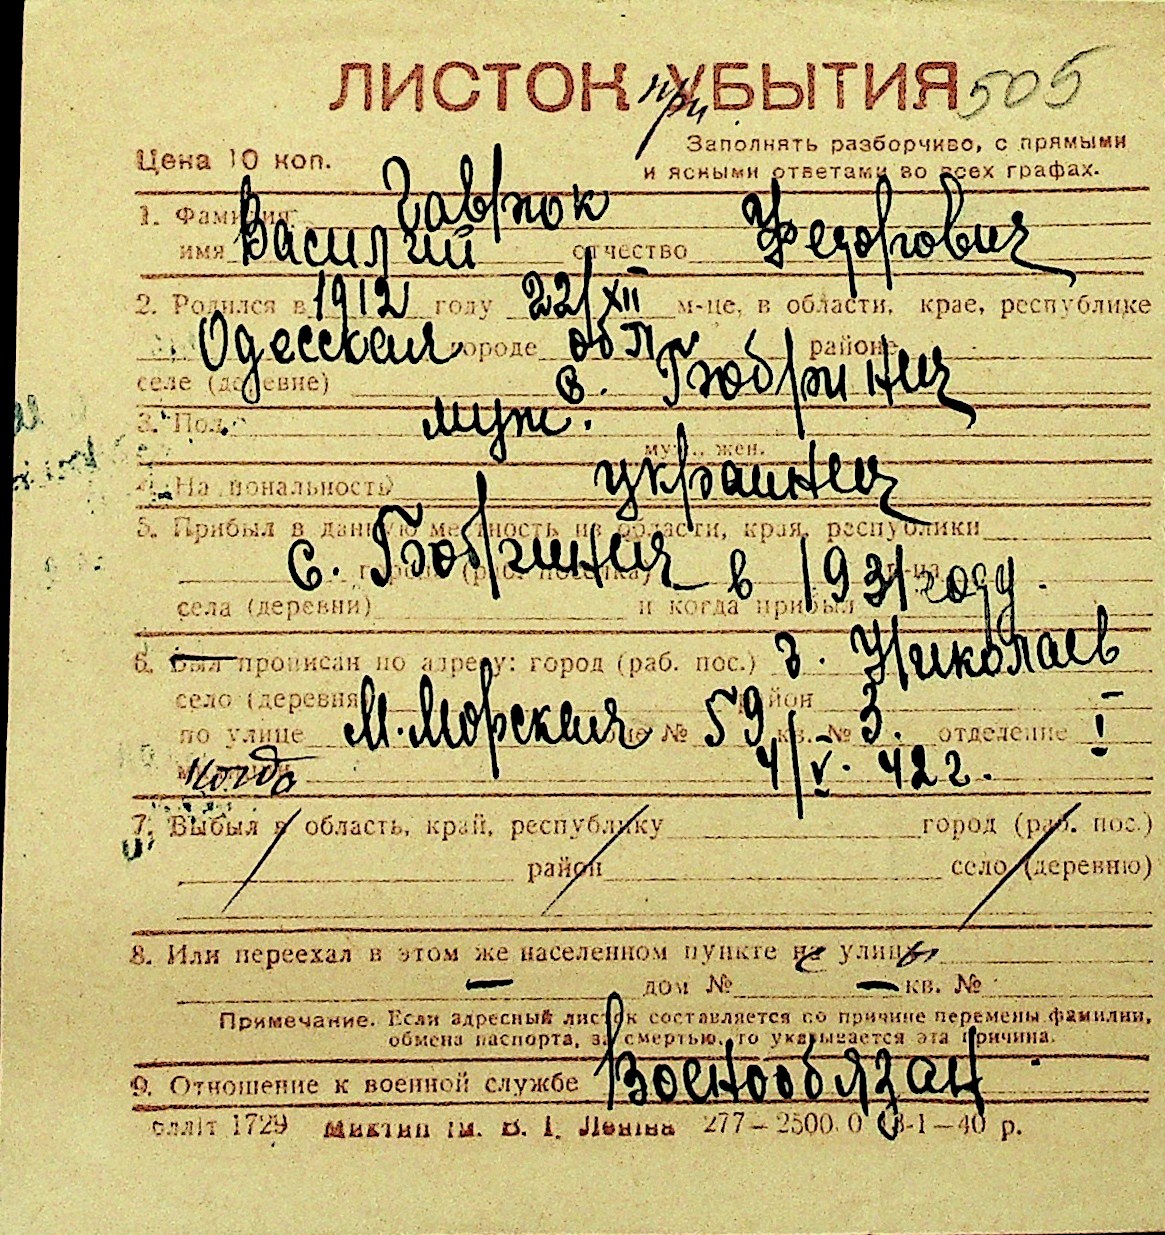 ЛИСТОК при УБЫТИЯ 505
Заполнять разборчиво, с прямыми
Цена 10 коп.
и ясными ответами во всех графах.
1. Фамилия: Гаврюк
имя Василий отчество Федорович
2. Родился в 1912 году 22/XII м-це, в области, крае, республике
Одесская городе обл районе
селе (деревне) с.
3. Пол муж.
муж., жен.
4. Национальность украинец
5. Прибыл в данную местность из области, края, республики
с. в 1931 году.
города (раб. поселка) р-на
села (деревни) и когда прибыл
6. Был прописан по адресу: город (раб. пос.) г. Николаев
село (деревня) район
по улице М. Морская № 59 кв. № 3. отделение I
когда 4/V. 42 г.
7. Выбыл в область, край, республику город (раб. пос.)
район село (деревню)
8. Или переехал в этом же населенном пункте на улицу
— дом № — кв. №
Примечание. Если адресный листок составляется по причине перемены фамилии,
обмена паспорта, за смертью, то указывается эта причина.
9. Отношение к военной службе Военнообязан
лліт 1729 ім. В. І. Леніна 277—2500 0 3-1—40 р.